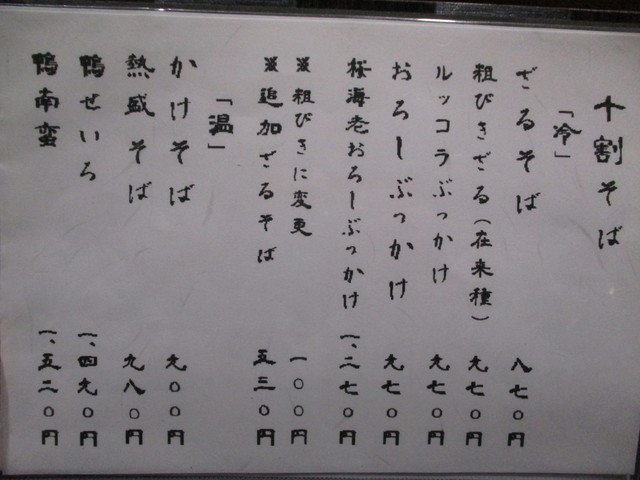 十割そば
「冷」
ざるそば 八七〇円
粗びきざる(在来種) 九七〇円
ルッコラぶっかけ 九七〇円
おろしぶっかけ 九七〇円
桜海老おろしぶっかけ 一、二七〇円
※粗びきに変更 一〇〇円
※追加ざるそば 五三〇円
「温」
かけそば 九〇〇円
熱盛そば 九八〇円
鴨せいろ 一、四九〇円
鴨南蛮 一、五二〇円